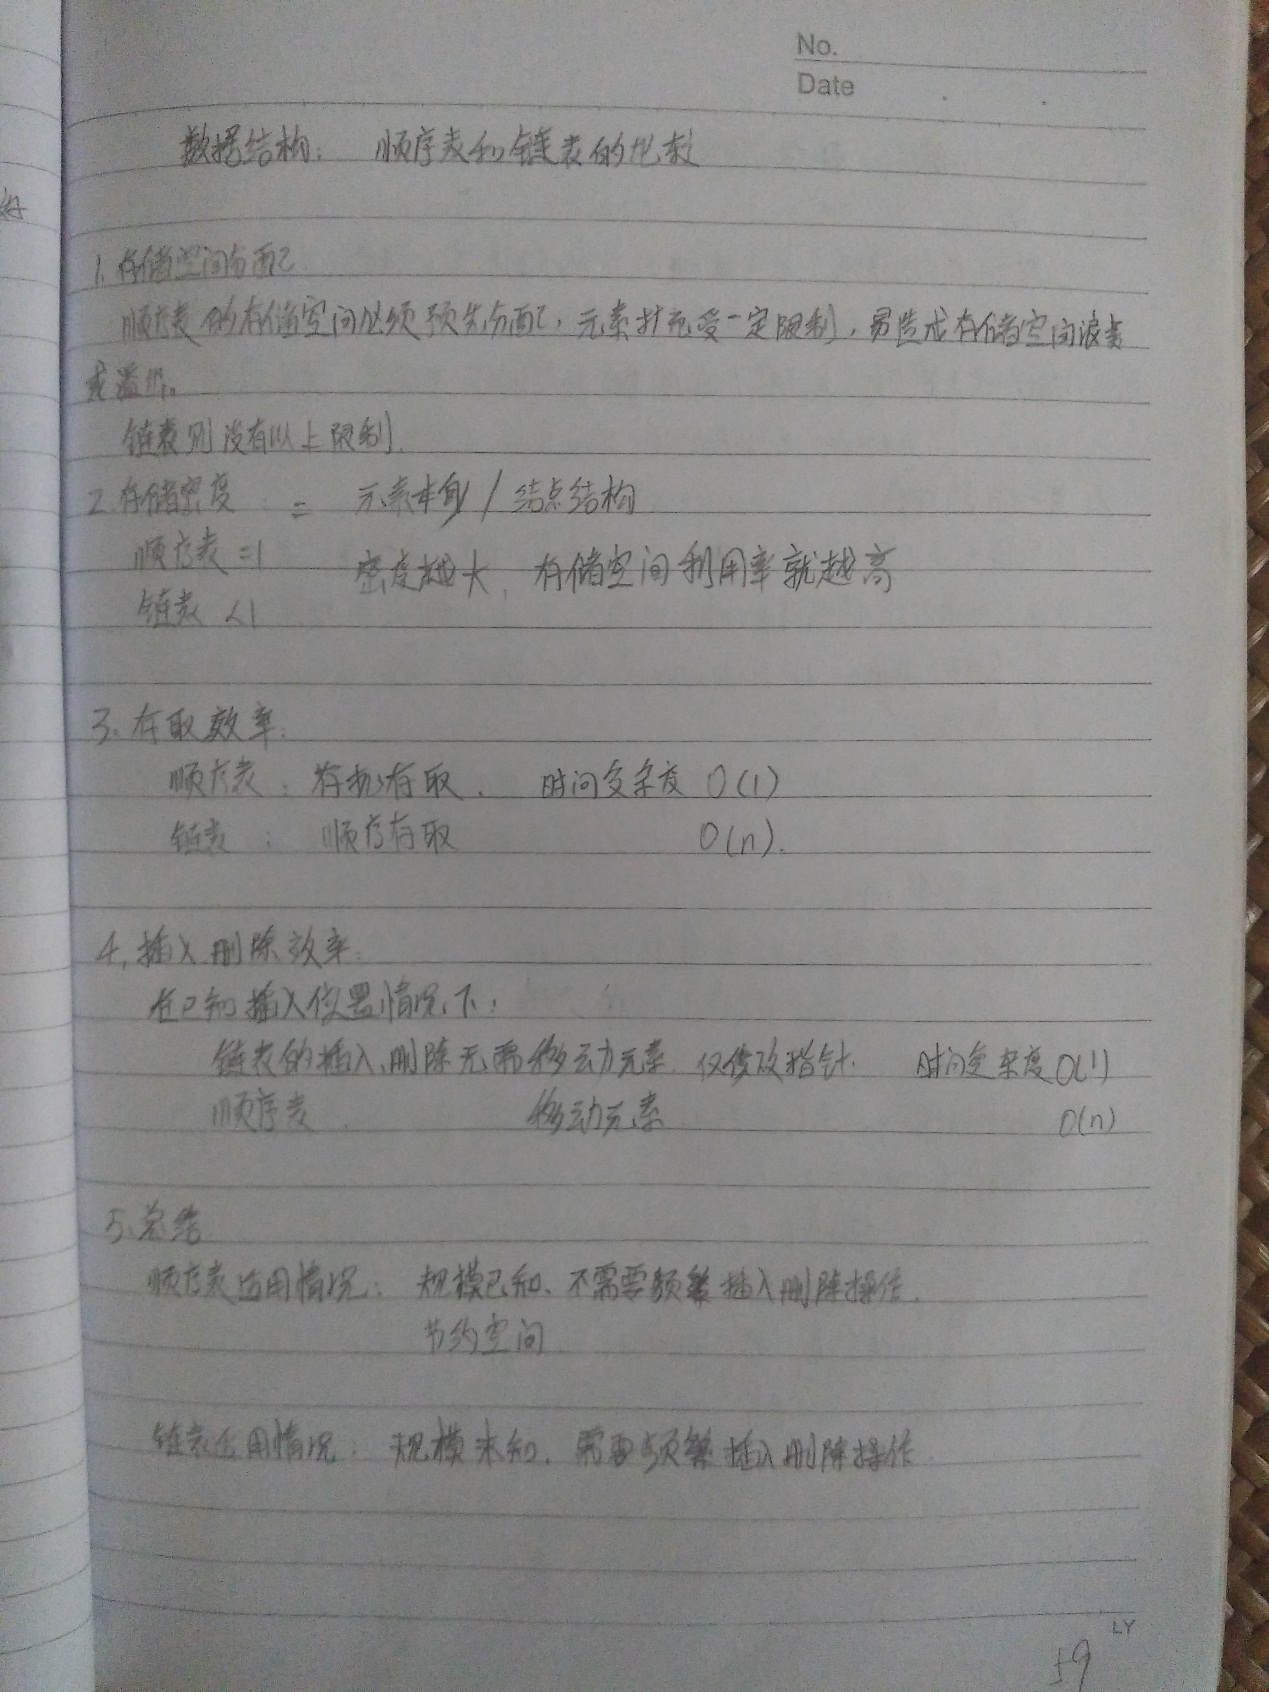 No.
Date
数据结构: 顺序表和链表的比较
1.存储空间分配
顺序表的存储空间必须预先分配,元素扩充受一定限制,易造成存储空间浪费
或溢出。
链表则没有以上限制.
2.存储密度 = 元素本身/结点结构
顺序表=1 密度越大,存储空间利用率就越高
链表<1
3.存取效率:
顺序表: 存取. 时间复杂度 O(1)
链表: 顺序存取 O(n).
4.插入删除效率:
在已知插入位置情况下:
链表的插入、删除无需移动元素.仅修改指针. 时间复杂度O(1)
顺序表. 移动元素 O(n)
5.总结
顺序表适用情况: 规模已知、不需要频繁插入删除操作.
节约空间
链表适用情况: 规模未知.需要频繁插入删除操作
LY
59